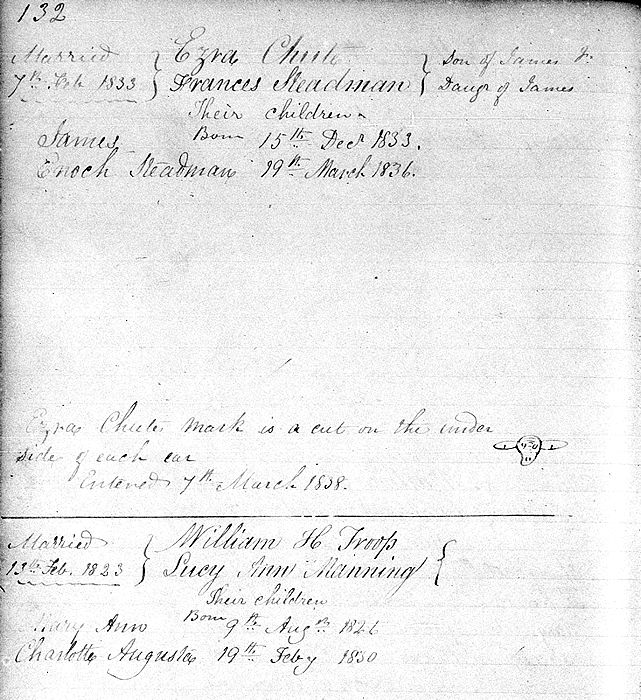 132
Married { Ezra Chute } Son of James &
7th Feb 1833 } Frances Steadman } Daugr of James
Their children
Born
James 15th Decr 1833.
Enoch Steadman 19th March 1836.
Ezra Chutes mark is a cut on the under
side of each ear
Entered 7th March 1838.
Married { William H Troop {
13th Feb. 1823 } Lucy Ann Manning
Their children
Born
Mary Ann 9th Augst 1826
Charlotte Augusta 19th Feby 1830